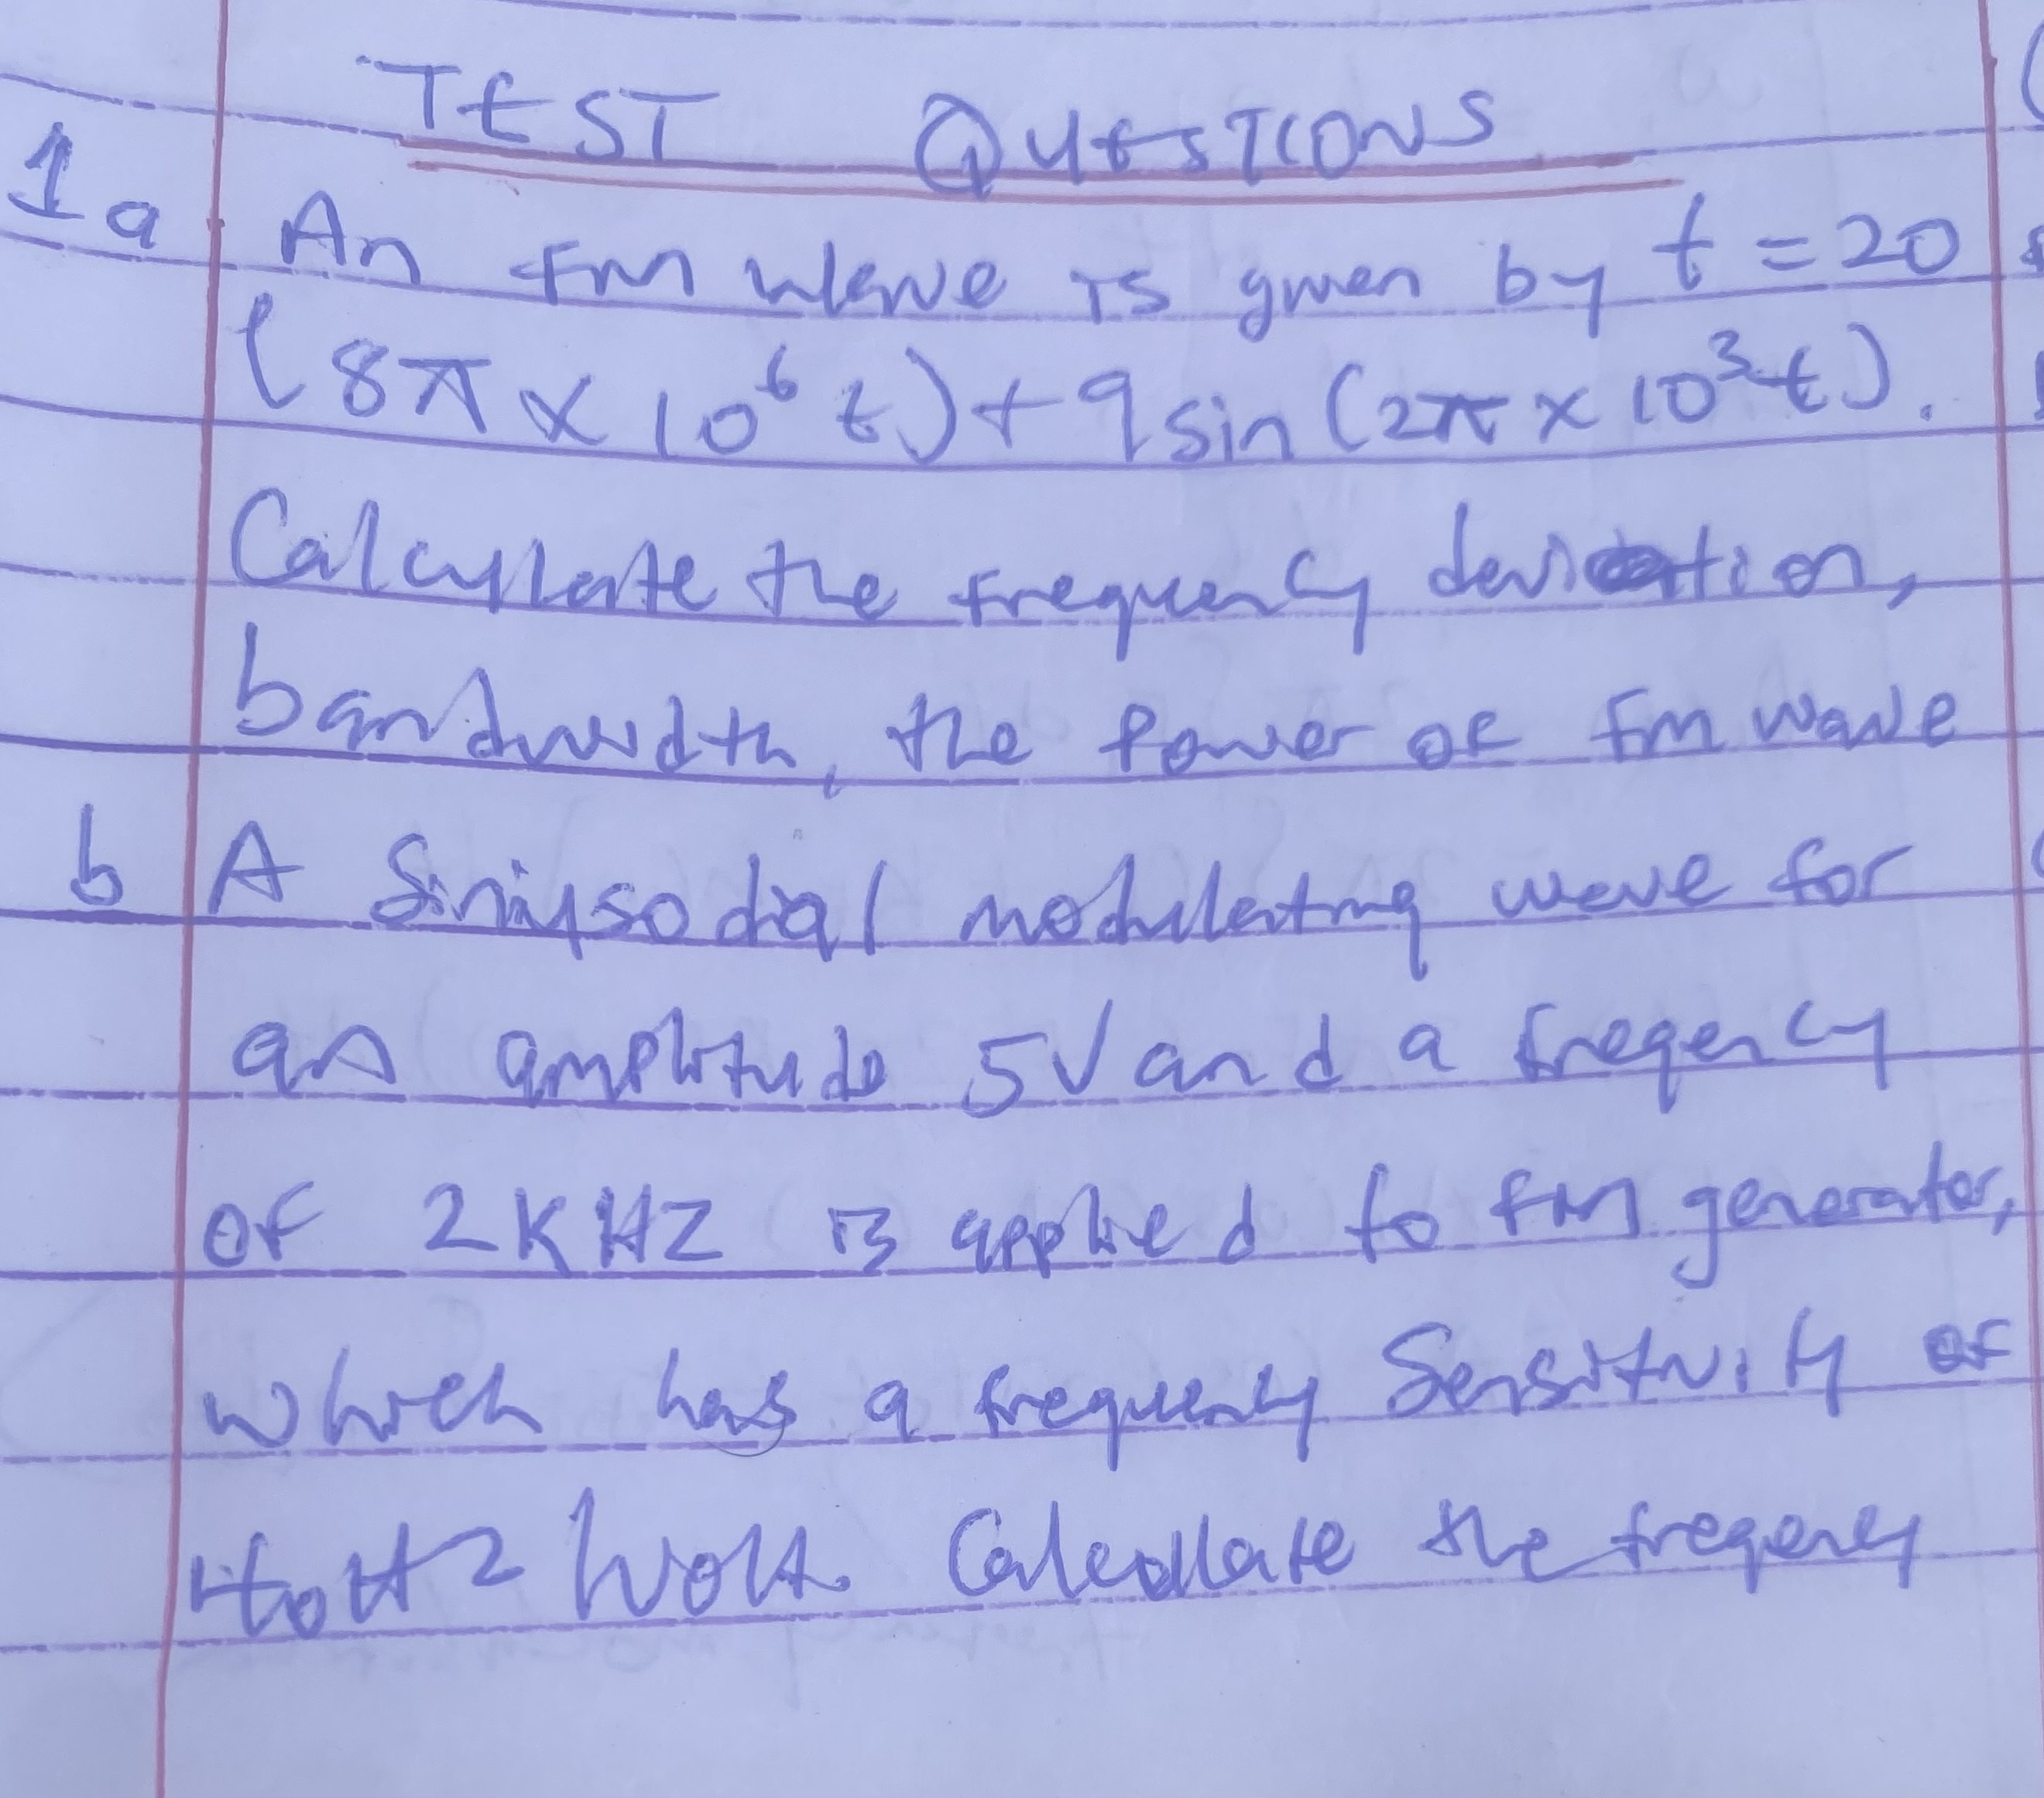 TEST QUESTIONS
1a An FM wave is given by t = 20
(8π × 10⁶ t) + 9 sin (2π × 10³ t).
Calculate the frequency deviation,
bandwidth, the power of Fm wave
b A Siniusodial modulating wave for
an amplitude 5V and a freqency
of 2KHZ is applied to fm generator,
which has a frequency Sensitivity of
Calculate the freqency